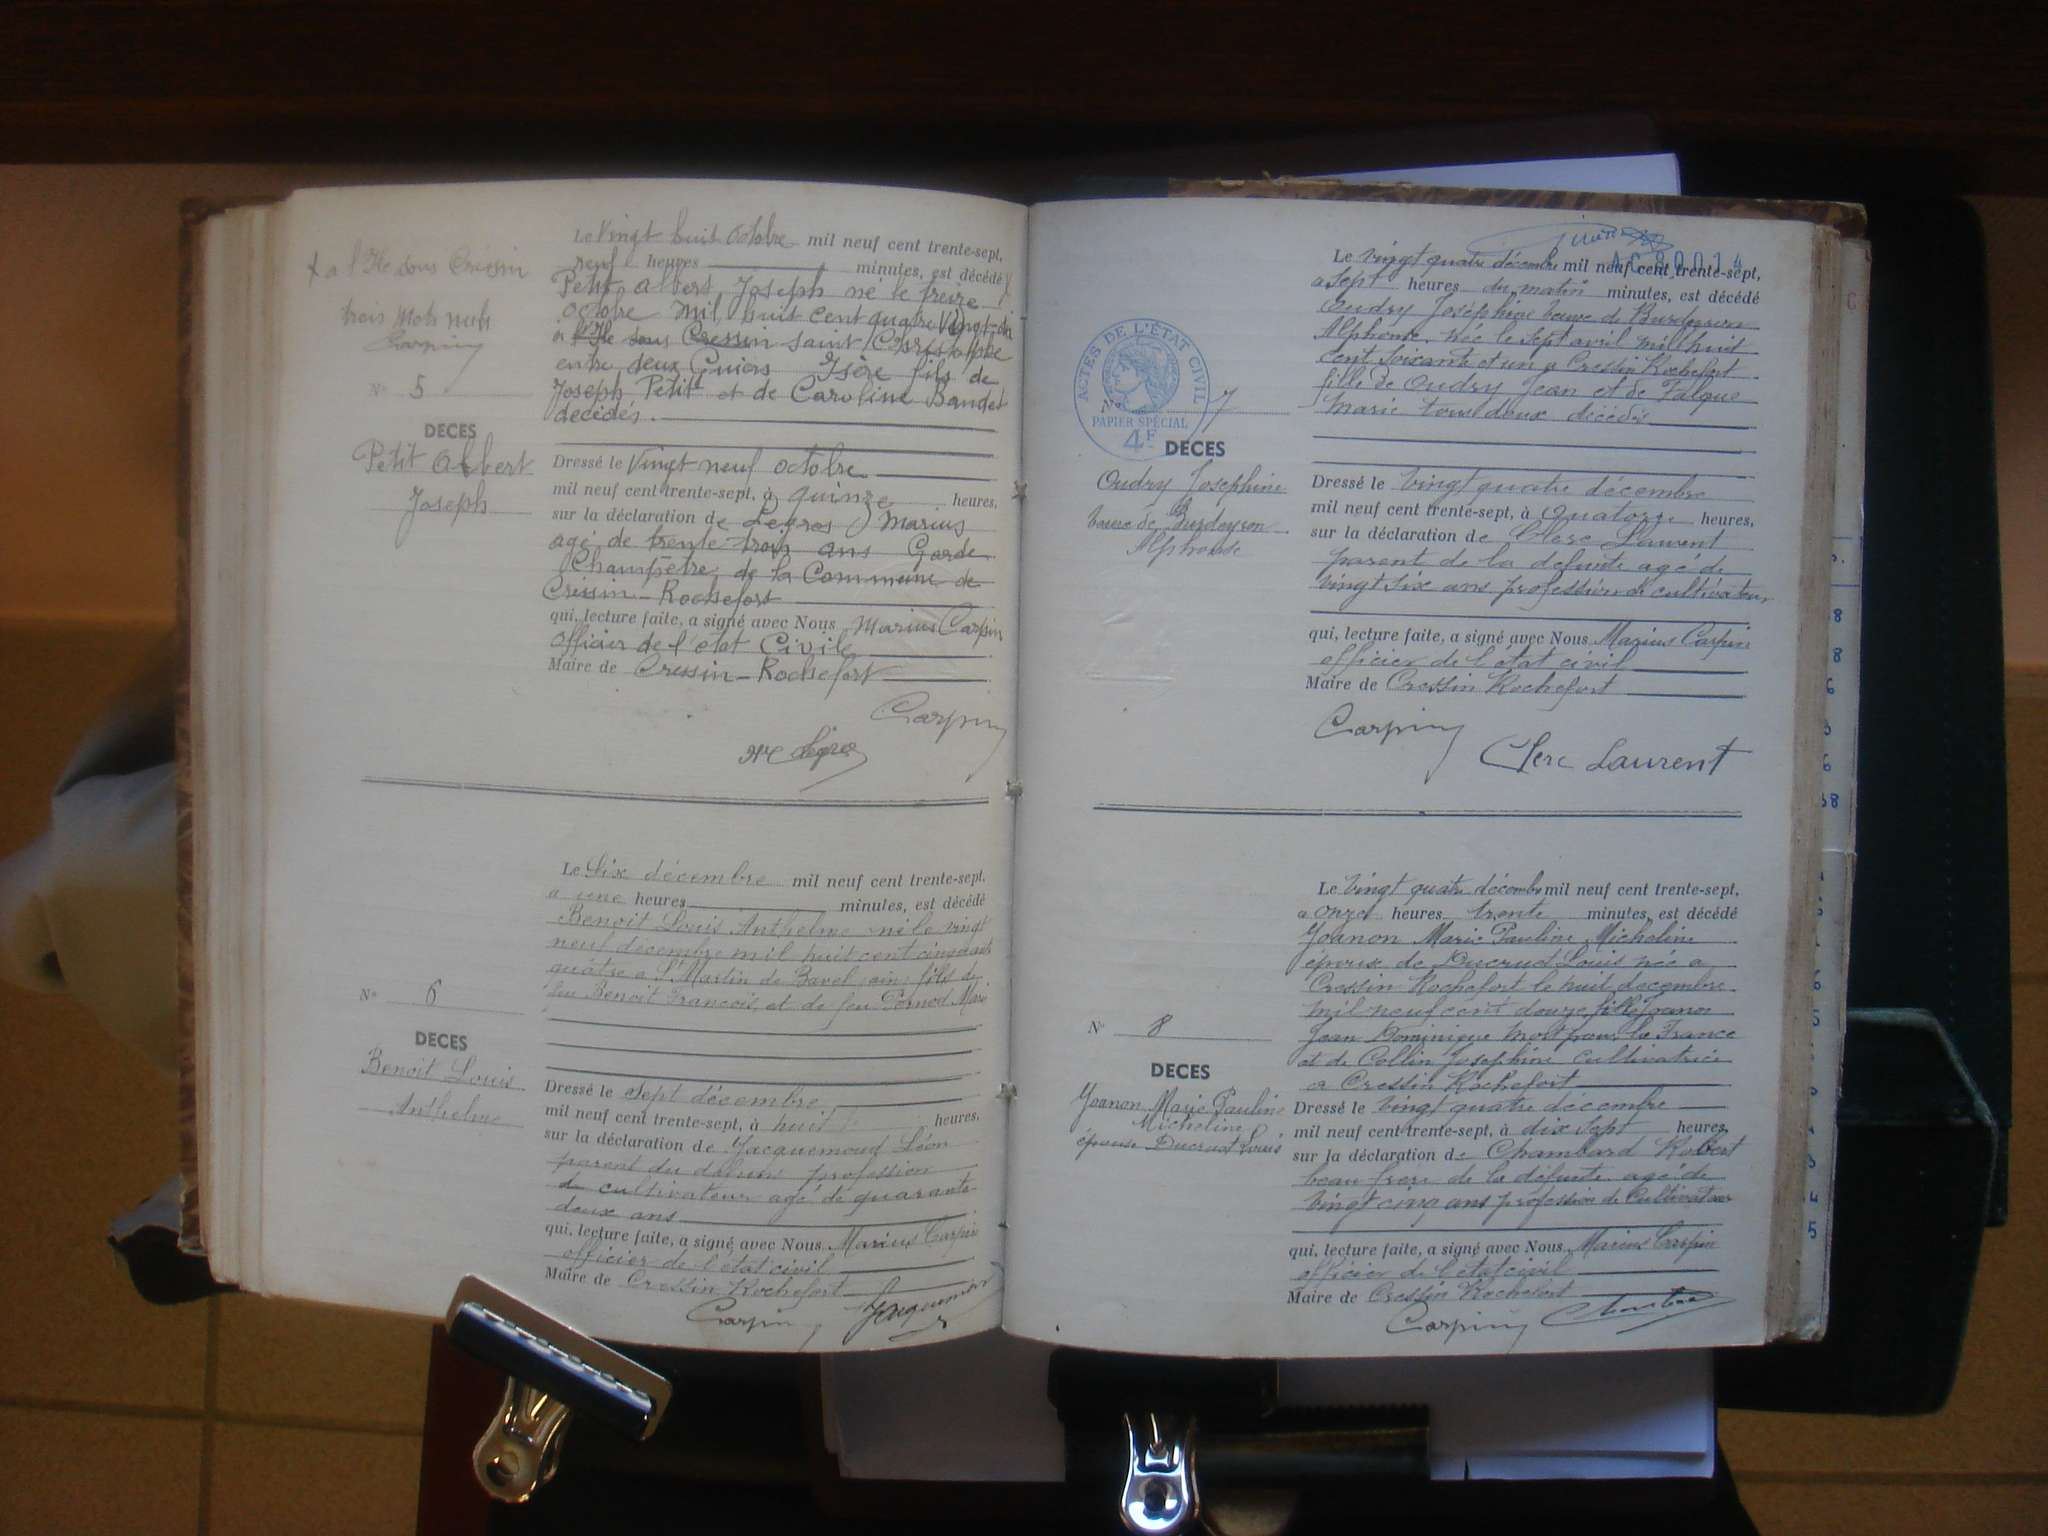 x a l'Ile sous Cressin
trois mots nuls
Carpin
N° 5
DECES
Petit Albert
Joseph
Le Vingt huit Octobre mil neuf cent trente-sept,
neuf heures minutes, est décédé
Petit Albert Joseph né le treize
octobre mil huit cent quatre Vingt-dix
à l'Ile sous Cressin Saint Christophe
entre deux Guiers Isère fils de
Joseph Petit et de Caroline Baudet
décédés.
Dressé le Vingt neuf octobre
mil neuf cent trente-sept, à quinze heures,
sur la déclaration de Legros Marius
agé de trente trois ans Garde
Champêtre de la Commune de
Cressin-Rochefort
qui, lecture faite, a signé avec Nous Marius Carpin
officier de l'état Civile
Maire de Cressin-Rochefort
Carpin
Legros
N° 6
DECES
Benoit Louis
Anthelme
Le Six décembre mil neuf cent trente-sept,
a une heures minutes, est décédé
Benoit Louis Anthelme né le vingt
neuf décembre mil huit cent cinquante
quatre a St Martin de Bavel ain fils de
feu Benoit Francois et de feu Pernod Marie
Dressé le Sept décembre
mil neuf cent trente-sept, à huit heures,
sur la déclaration de Jacquemoud Léon
parent du défunt profession
de cultivateur agé de quarante
deux ans
qui, lecture faite, a signé avec Nous Marius Carpin
officier de l'état civil
Maire de Cressin Rochefort
Carpin Jacquemoud
AC 80014
ACTES DE L'ÉTAT CIVIL
PAPIER SPÉCIAL
4F
N° 7
DECES
Oudry Josephine
veuve de Burdeyron
Alphonse
Le Vingt quatre décembre mil neuf cent trente-sept,
a Sept heures du matin minutes, est décédé
Oudry Joséphine veuve de Burdeyron
Alphonse née le sept avril mil huit
cent soixante et un a Cressin Rochefort
fille de Oudry Jean et de Falque
Marie tous deux décédés
Dressé le Vingt quatre décembre
mil neuf cent trente-sept, à Quatorze heures,
sur la déclaration de Clerc Laurent
parent de la defunte agé de
vingt six ans profession de cultivateur
qui, lecture faite, a signé avec Nous Marius Carpin
officier de l'état civil
Maire de Cressin Rochefort
Carpin
Clerc Laurent
N° 8
DECES
Joanon Marie Pauline
Micheline
épouse Ducruet Louis
Le Vingt quatre décembre mil neuf cent trente-sept,
a onze heures trente minutes, est décédé
Joanon Marie Pauline Micheline
épouse de Ducruet Louis née a
Cressin Rochefort le huit décembre
mil neuf cent douze fille Joanon
Jean Dominique mort pour la France
et de Collin Joséphine cultivatrice
a Cressin Rochefort
Dressé le Vingt quatre décembre
mil neuf cent trente-sept, à dix sept heures,
sur la déclaration de Chambard Robert
beau frère de la défunte agé de
vingt cinq ans profession de Cultivateur
qui, lecture faite, a signé avec Nous Marius Carpin
officier de l'état civil
Maire de Cressin Rochefort
Carpin